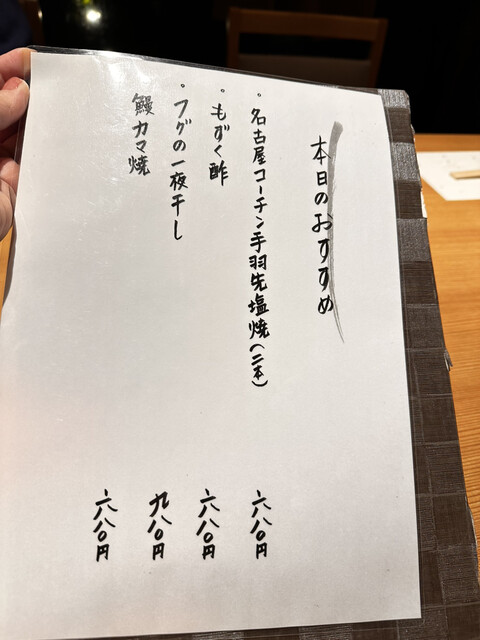 本日のおすすめ
・名古屋コーチン手羽先塩焼(二本) 六八〇円
・もずく酢 六八〇円
・フグの一夜干し 九八〇円
鰻カマ焼 六八〇円